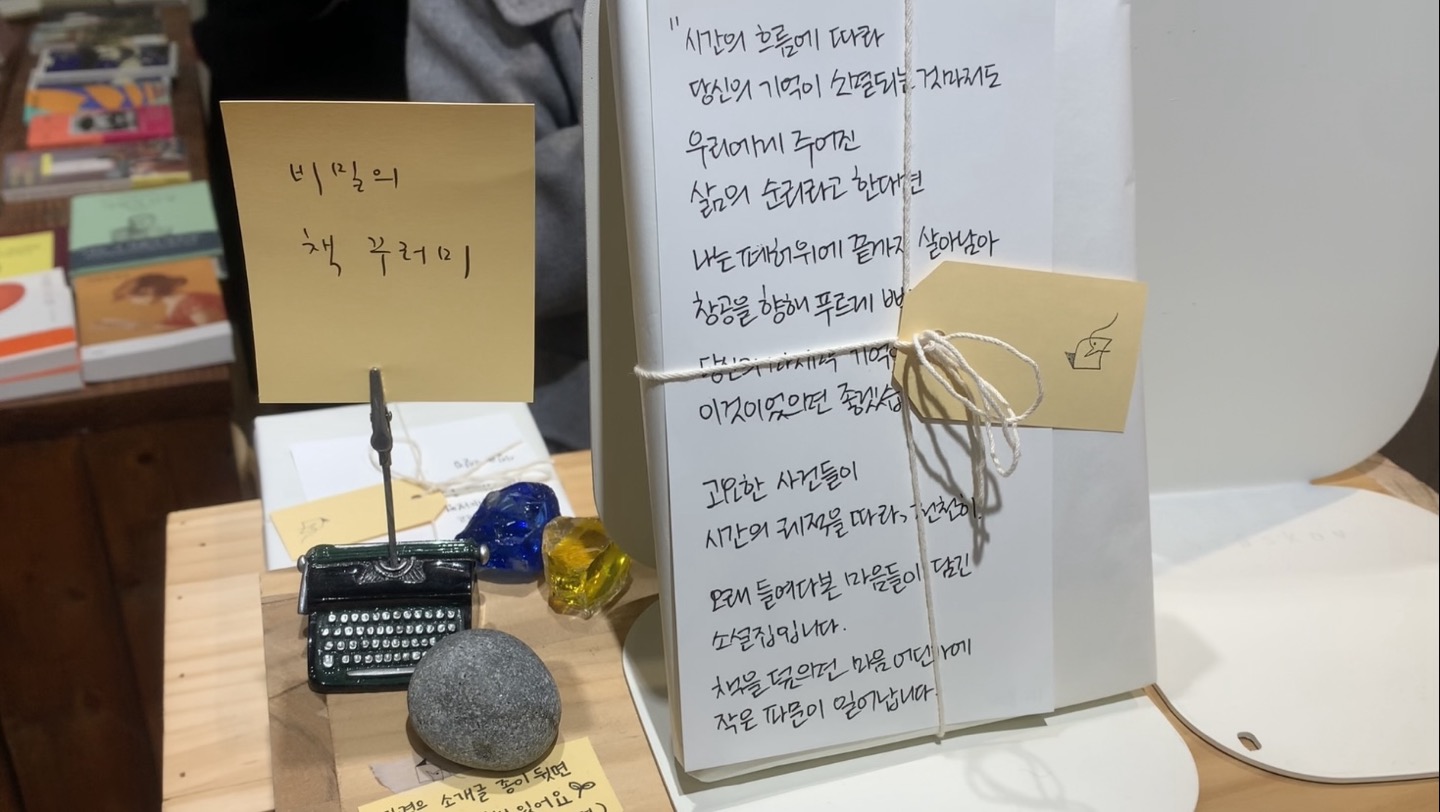 비밀의
책 꾸러미
"시간의 흐름에 따라
당신의 기억이 소멸되는 것마저도
우리에게 주어진
삶의 순리라고 한다면
나는 폐허위에 끝까지 살아남아
창공을 향해 푸르게
당신의 마지막
이것이었으면
고요한 사건들이
시간의 궤적을 따라, 천천히,
오래 들여다본 마음들이 담긴
소설집입니다.
책을 덮으면 마음 어딘가에
작은 파문이 일어납니다.
소개글 종이 뒷면